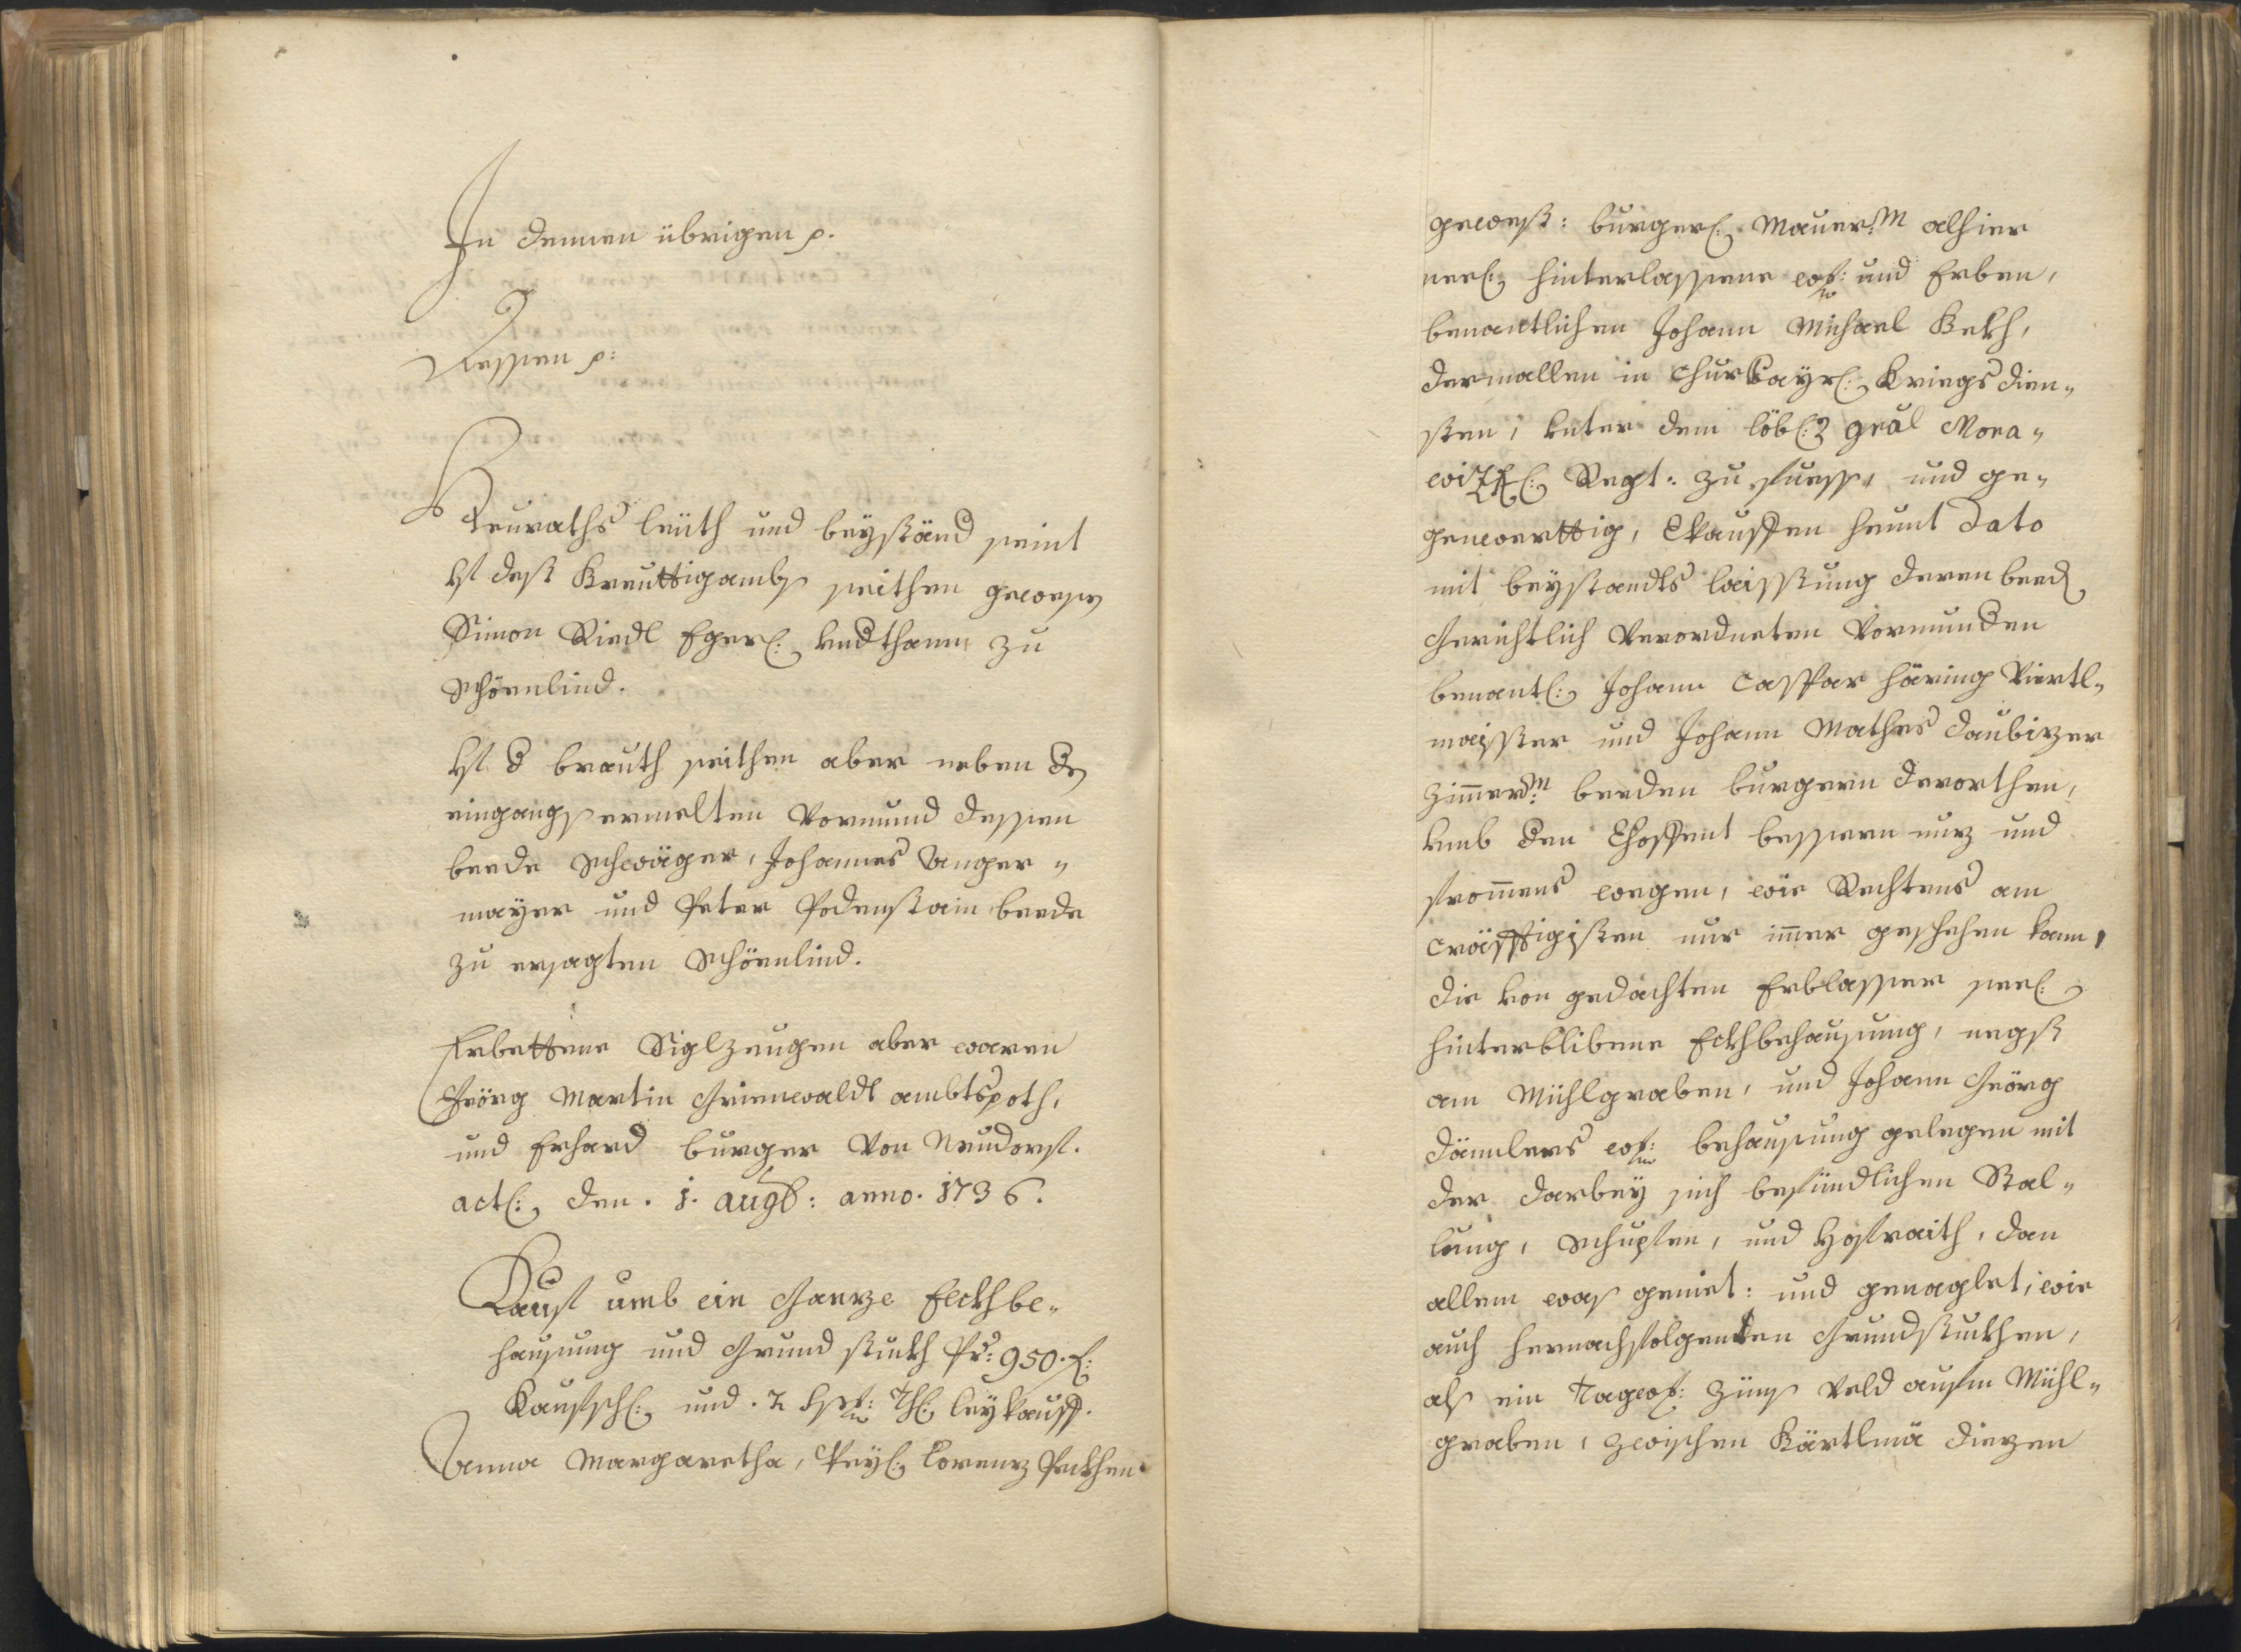 In dennen übrigen p.
Dessen p:
Heuraths leüth und beyständ seint
uf deß Breuttigambs seithen gewesen
Simon Riedl Eger(: undthann zu
Schönlind.
uf d brauth seithen aber neben den
eingangs ermelten Vormund dessen
beede Schwäger, Johannes Unger„
mayer und Peter Podenstain beede
zu ersagten Schönlind.
Erbettene Siglzeugen aber waren
Geörg Martin Grienwaldt ambtspoth,
und Erhard burger Von Neudorf.
act(: den. 1. augß: anno. 1736.
Kauf umb ein Ganze Eckhbe„
hausung und Grund stuckh Pr: 950. f:
Kaufsch(: und. 2 Leykauff.
Anna Margaretha, Weyl: Lorenz Peckhen
gewest: burger(: Maurer M alhier
seel: hinterlassene wtb: und Erben,
benantlichen Johann Michael Bekh,
dermallen in ChurBayr(: Kriegs dien„
sten, unter dem löb(: gräl Mora„
Regt: zu fuess, und ge„
genwerttig, Verkauffen heunt Dato
mit beystandts laisstung deren beed
Gerichtlich Verordneten Vormunden
benant(: Johann Caspar Häring Viertl„
maisster und Johann Mathes Daubizer
Zimmer M: beeden burgern derorthen,
umb den Ehoffent bessern nuz und
frommens wegen, wie Rechtens am
Cräfftigisten nur immer geschehen kann,
die von gedachten Erblasser seel:
hinterblibene Eckhbehausung, negst
am Mühlgraben, und Johann Geörg
Dännlers wtb: behausung gelegen mit
der darbey sich befündlichen Stal„
lung, Schupfen, und Hofraith, dan
allem was geniet: und genaglet, wie
auch hernachfolgenten Grundstuckhen,
als ein Tagw: Züns Veld aufm Mühl„
graben, zwischen Bärtlmä Diezen